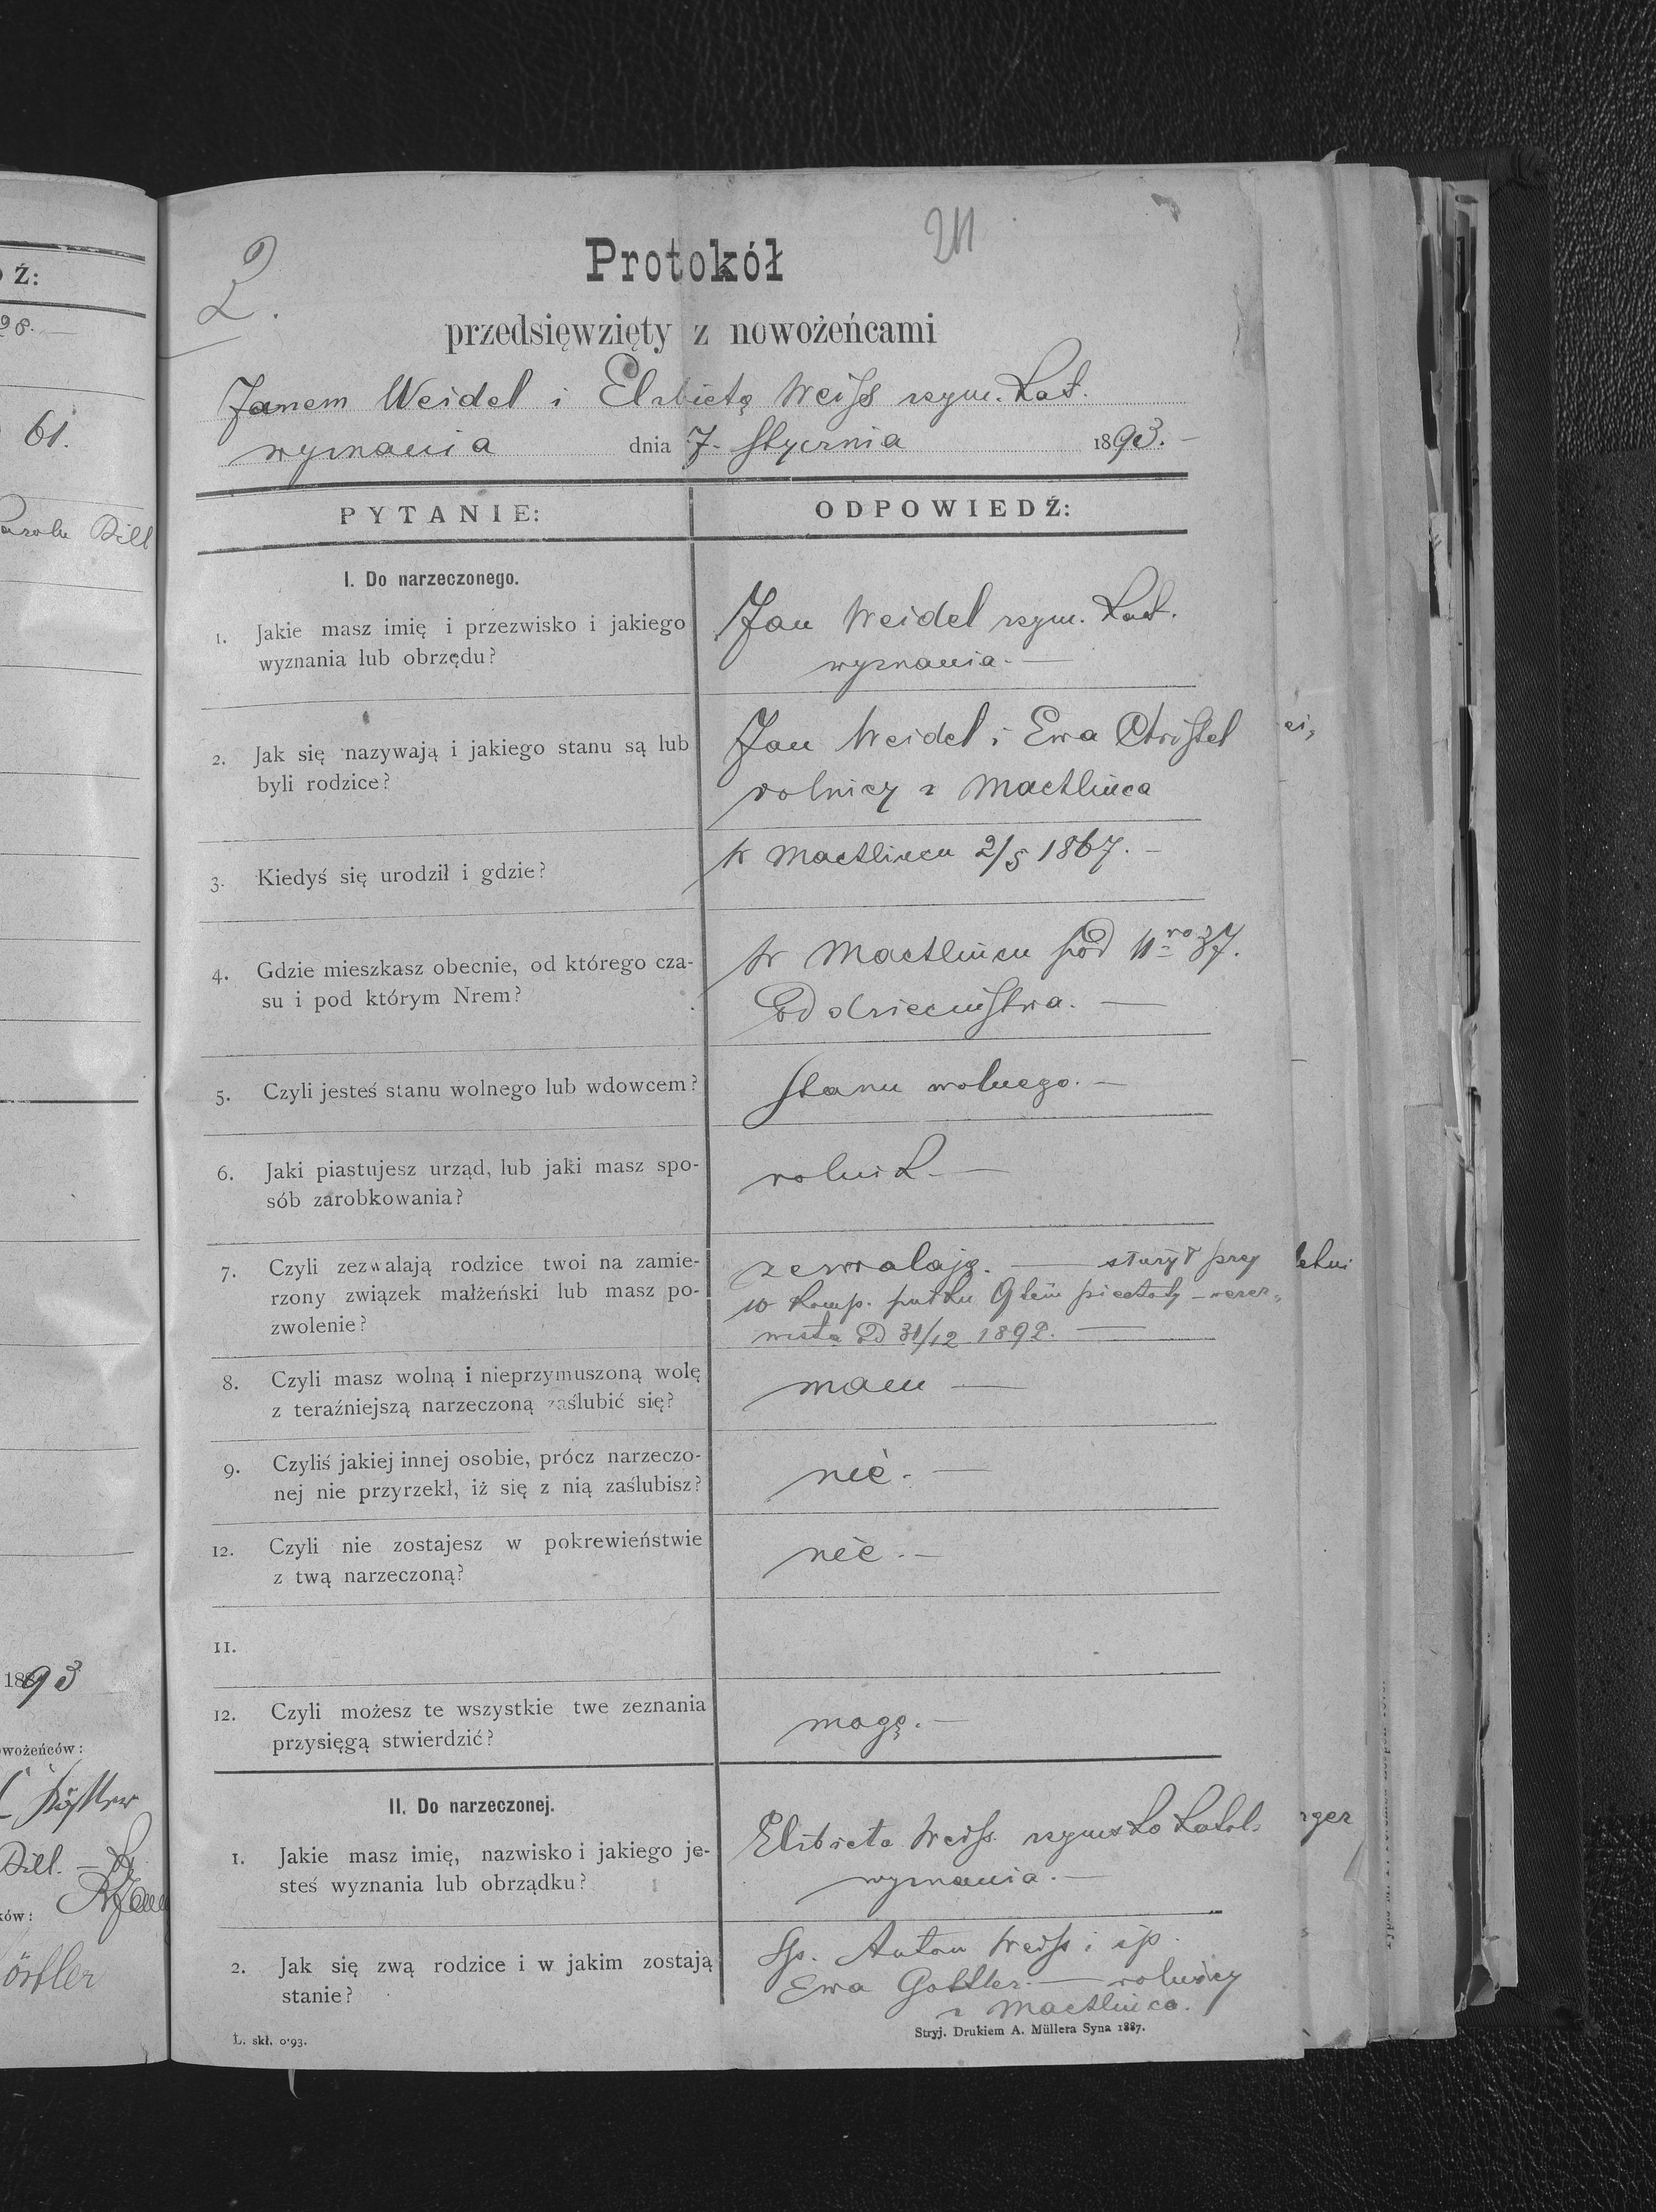 211
2.
Protokół
przedsięwzięty z nowożeńcami
Janem Weidel i Elzbietą Weiss rzym. kat.
wyznania dnia 7. Stycznia 1893. -
PYTANIE: ODPOWIEDŹ:
I. Do narzeczonego.
1. Jakie masz imię i przezwisko i jakiego
wyznania lub obrzędu?
Jan Weidel rzym. kat.
wyznania. —
2. Jak się nazywają i jakiego stanu są lub
byli rodzice?
Jan Weidel i Ewa Christel
rolnicy z Machlinca
3. Kiedyś się urodził i gdzie?
w Machlincu 2/5 1867. -
4. Gdzie mieszkasz obecnie, od którego cza-
su i pod którym Nrem?
w Machlincu pod Nro 37.
Od dzieciństwa. —
5. Czyli jesteś stanu wolnego lub wdowcem?
Stanu wolnego. —
6. Jaki piastujesz urząd, lub jaki masz spo-
sób zarobkowania?
rolnik. —
7. Czyli zezwalają rodzice twoi na zamie-
rzony związek małżeński lub masz po-
zwolenie?
zezwalają. — służył przy
10 komp. pułku 9 piechoty - rezer-
wista Od 31/12 1892. —
8. Czyli masz wolną i nieprzymuszoną wolę
z teraźniejszą narzeczoną zaślubić się?
mam —
9. Czyliś jakiej innej osobie, prócz narzeczo-
nej nie przyrzekł, iż się z nią zaślubisz?
nie. —
12. Czyli nie zostajesz w pokrewieństwie
z twą narzeczoną?
nie. —
11.
12. Czyli możesz te wszystkie twe zeznania
przysięgą stwierdzić?
mogę. —
II. Do narzeczonej.
1. Jakie masz imię, nazwisko i jakiego je-
steś wyznania lub obrządku?
Elżbieta Weiss rzymsko katol.
wyznania. —
2. Jak się zwą rodzice i w jakim zostają
stanie?
Sp. Anton Weiss i sp.
Ewa Gottler. — rolnicy
z Machlinca.
Ł. skł. 0·93.
Stryj. Drukiem A. Müllera Syna 1887.
Ź:
98. —
61.
Dill
1893
wożeńców:
Dill. —
ków:
örtler